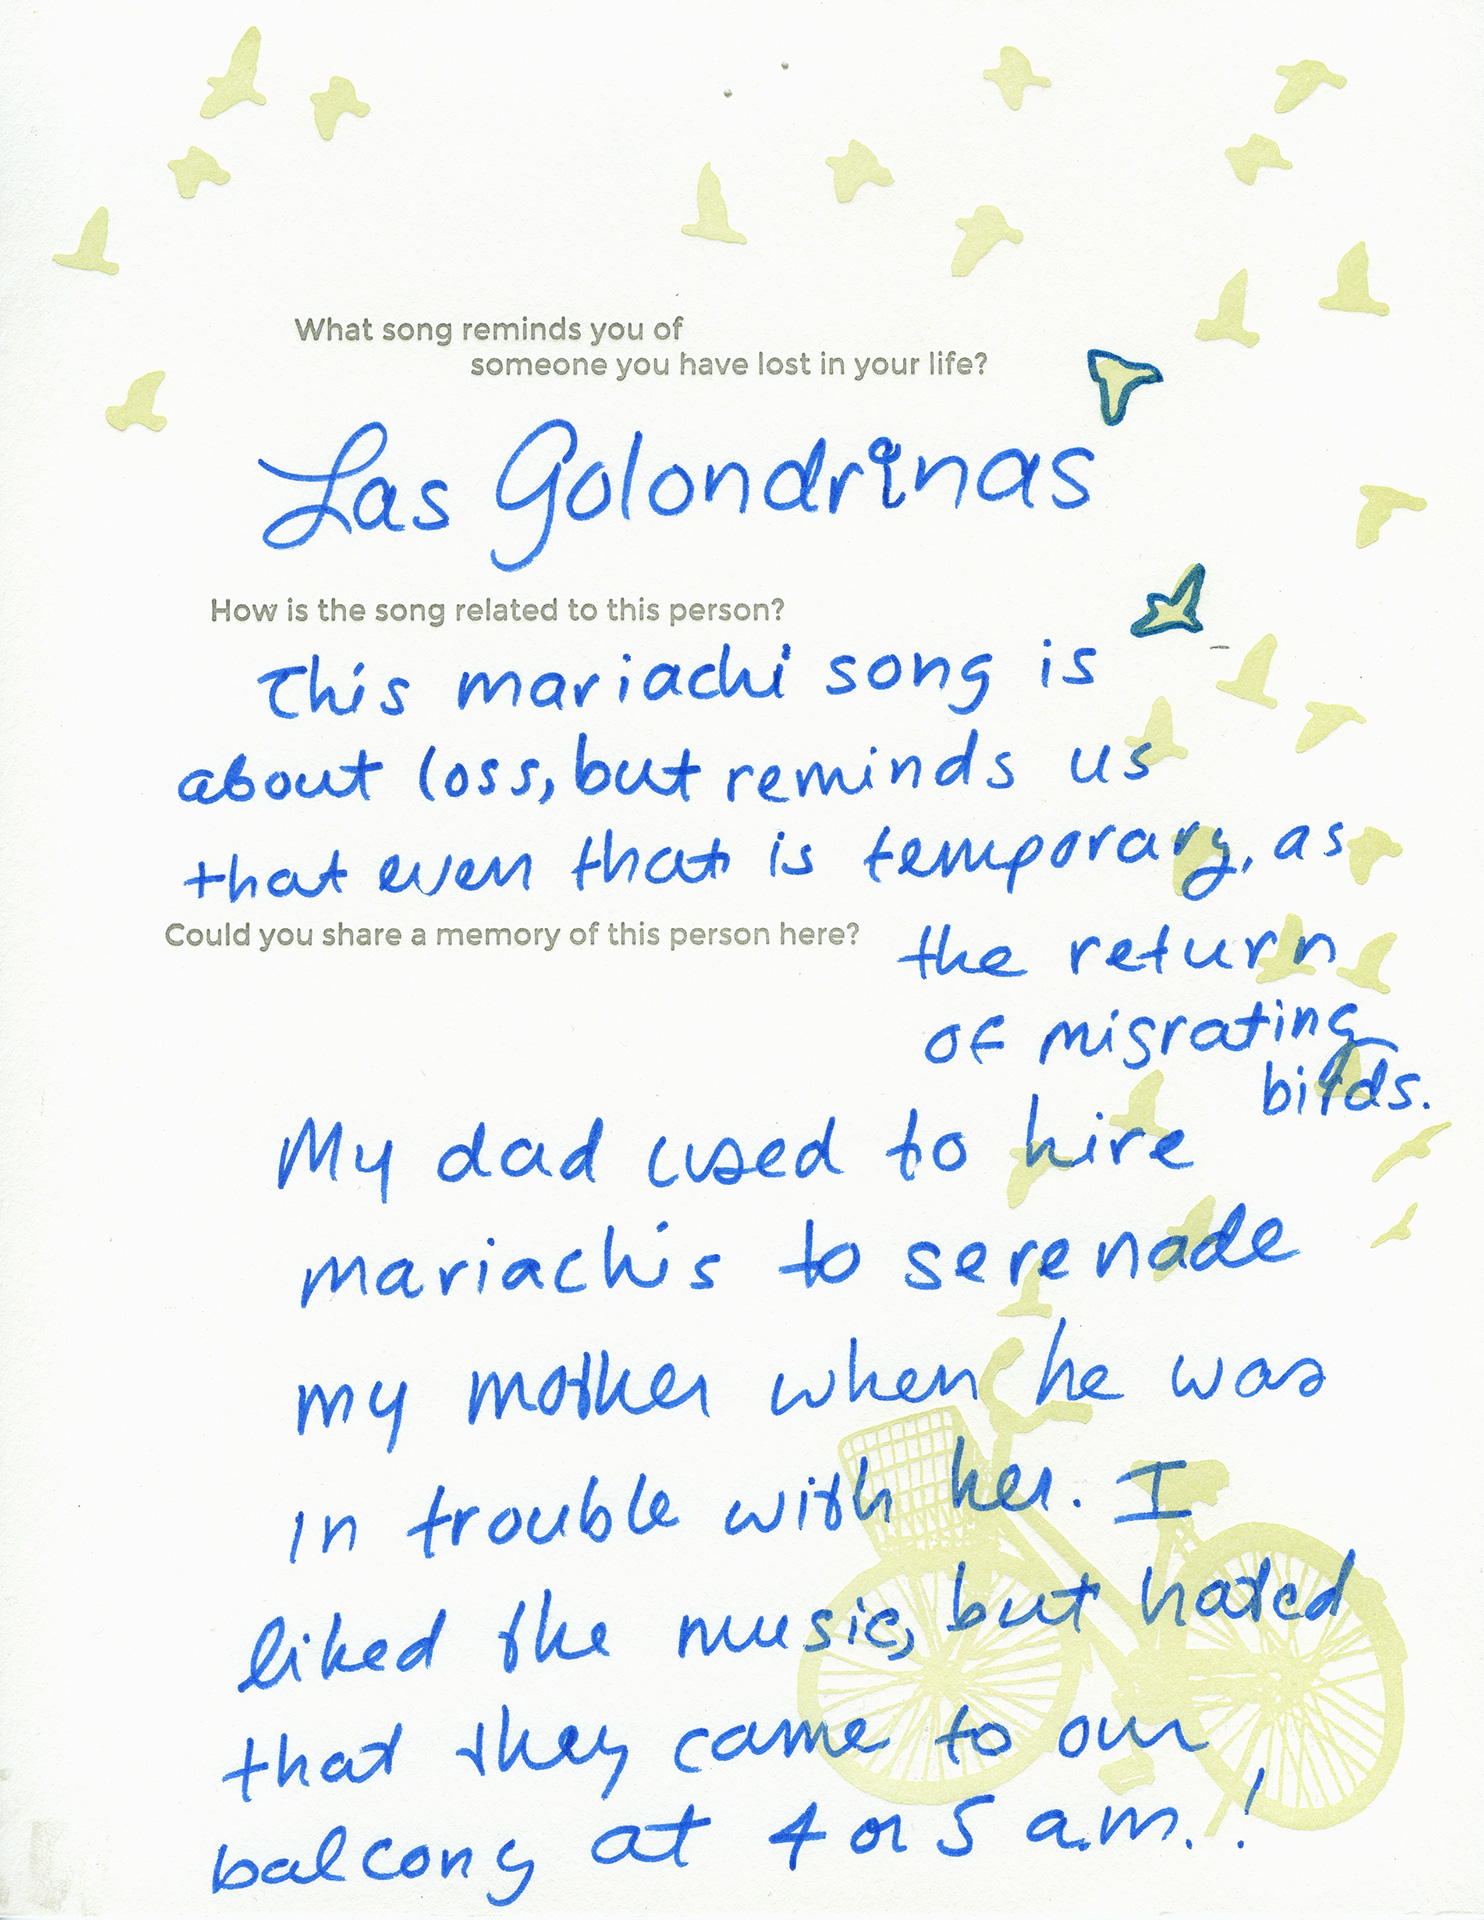 What song reminds you of
someone you have lost in your life?
Las Golondrinas
How is the song related to this person?
This mariachi song is
about loss, but reminds us
that even that is temporary, as
the return
of migrating
birds.
Could you share a memory of this person here?
My dad used to hire
mariachis to serenade
my mother when he was
in trouble with her. I
liked the music, but hated
that they came to our
balcony at 4 or 5 a.m.!